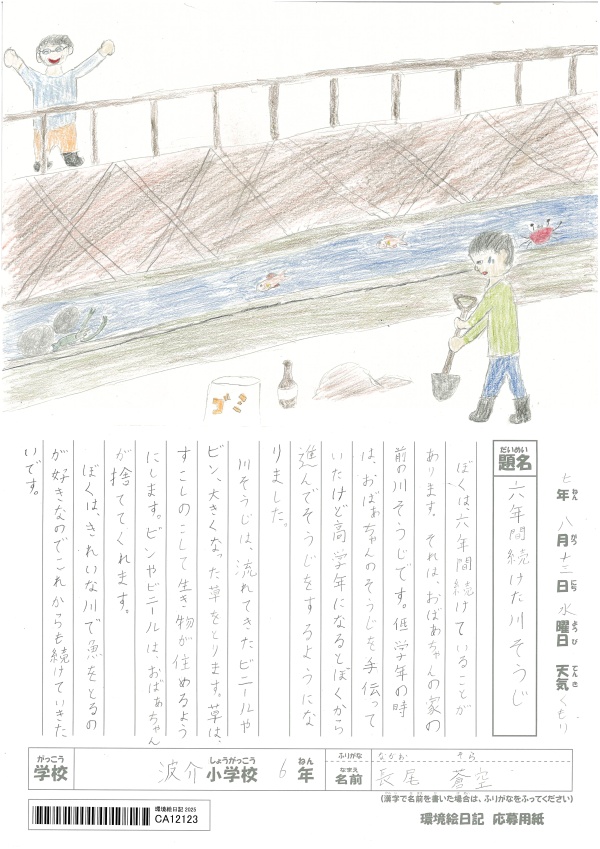 ゴミ
七年 八月 十三日 水曜日 天気 くもり
ねん がつ にち ようび てんき
題名 六年間続けた川そうじ
だいめい
ぼくは、六年間続けていることが
あります。それは、おばあちゃんの家の
前の川そうじです。低学年の時
は、おばあちゃんのそうじを手伝って
いたけど高学年になるとぼくから
進んでそうじをするようにな
りました。
川そうじは、流れてきたビニールや
ビン、大きくなった草をとります。草は、
すこしのこして生き物が住めるよう
にします。ビンやビニールは、おばあちゃん
が捨ててくれます。
ぼくは、きれいな川で魚をとるの
が好きなのでこれからも続けていきた
いです。
がっこう しょうがっこう ねん
学校 波介 小学校 6 年
ふりがな ながお そら
なまえ
名前 長尾 蒼空
(漢字で名前を書いた場合は、ふりがなをふってください)
環境絵日記 2025
CA12123
環境絵日記 応募用紙